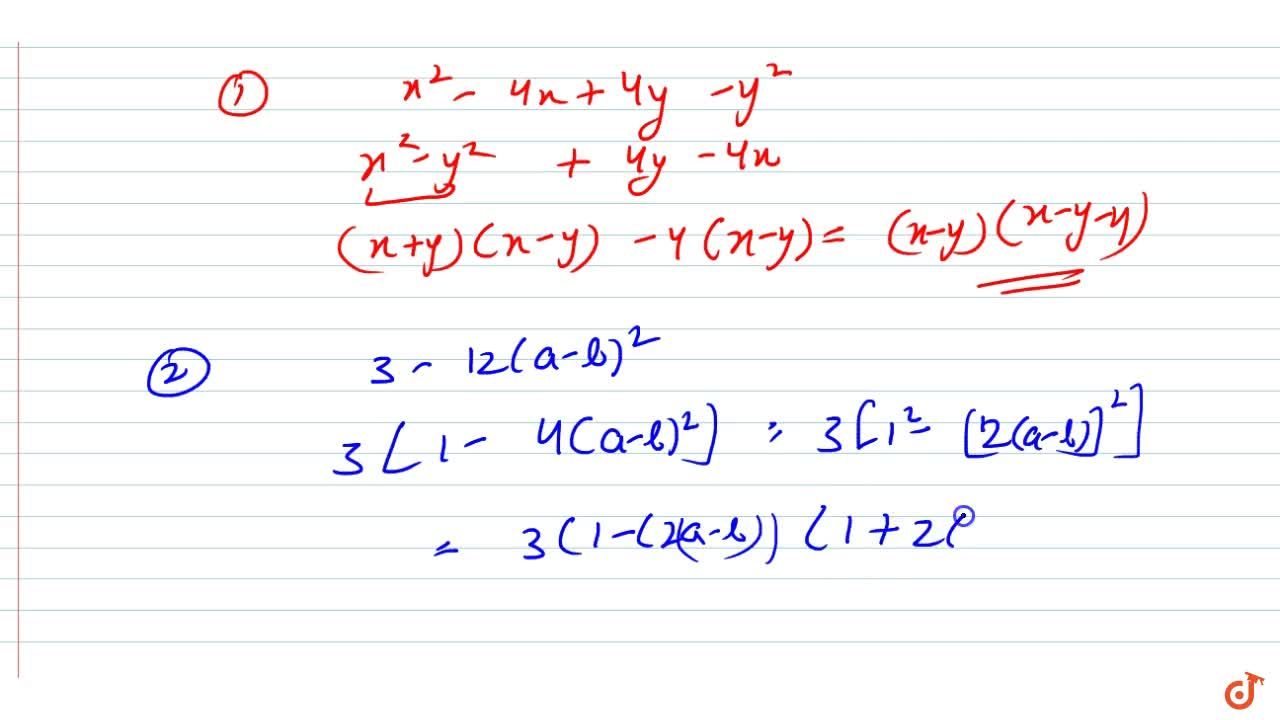 ① x² - 4x + 4y - y²
x² - y² + 4y - 4x
(x+y)(x-y) - 4(x-y) = (x-y)(x-y-4)
② 3 - 12(a-b)²
3[1 - 4(a-b)²] = 3[1² - [2(a-b)]²]
= 3(1-(2(a-b))(1+2(